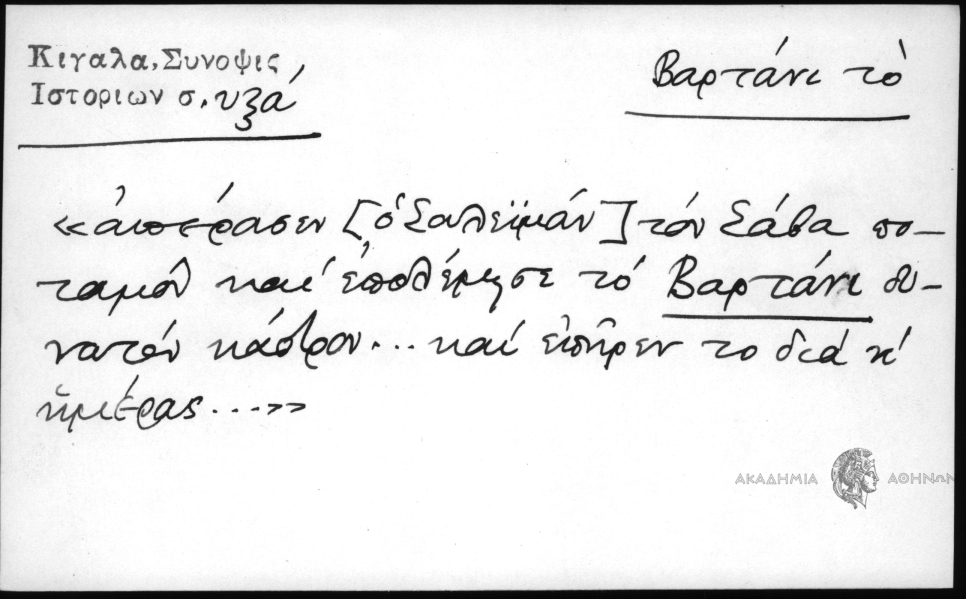 Κιγαλα, Συνοψις
Ιστοριων σ. υξά
Βαρτάνι τὸ
«ἀπέρασεν [ὁ Σουλεϊμάν] τόν Σάβα πο-
ταμόν καί ἐπολέμησε τό Βαρτάνι δυ-
νατόν κάστρον... καί ἐπῆρεν το διά κ'
ἡμέρας...»
ΑΚΑΔΗΜΙΑ ΑΘΗΝΩΝ